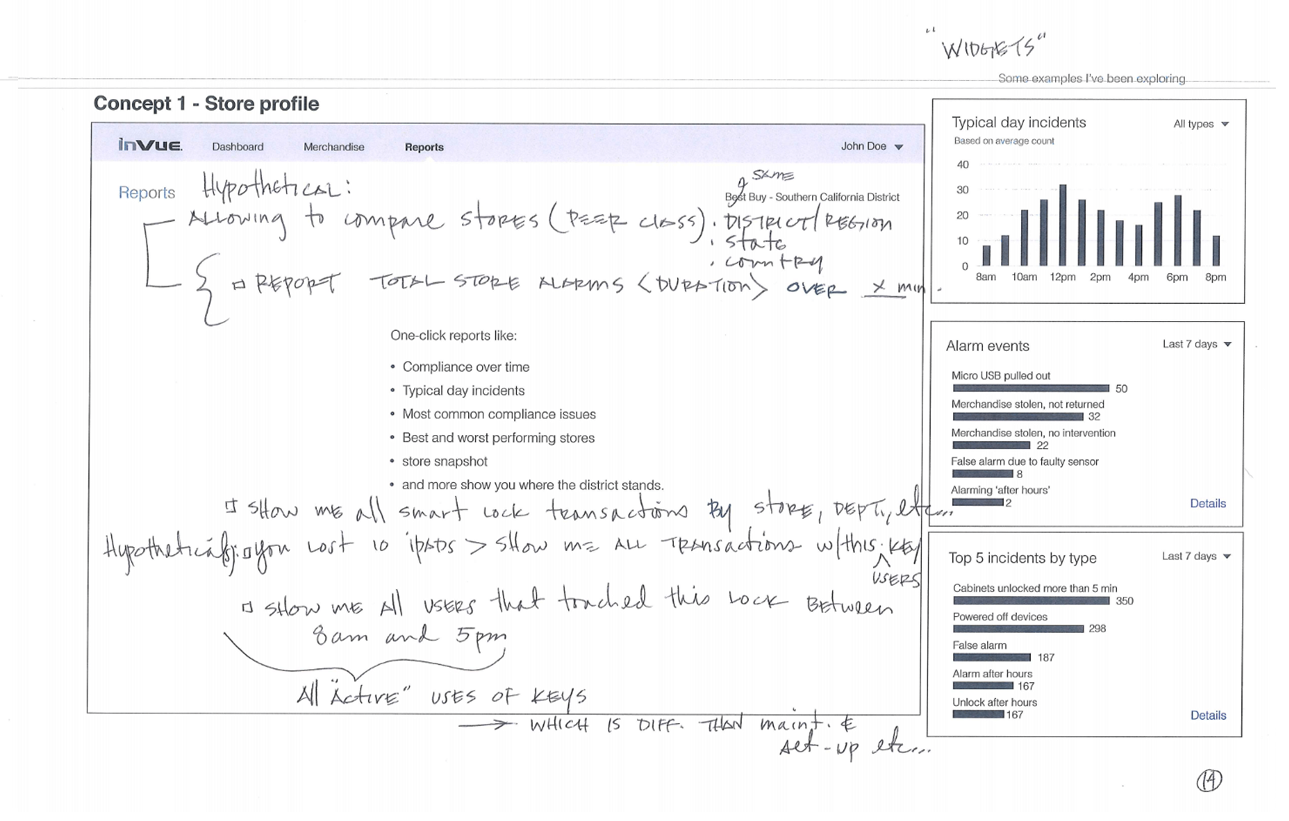 "WIDGETS"
Some examples I've been exploring
Concept 1 - Store profile
inVUE.
Dashboard
Merchandise
Reports
John Doe
Reports
HYPOTHETICAL:
SAME
Best Buy - Southern California District
ALLOWING to compare STORES (PEER CLASS)
• DISTRICT/REGION
• State
• COUNTRY
REPORT TOTAL STORE ALARMS <DURATION> OVER X min.
One-click reports like:
• Compliance over time
• Typical day incidents
• Most common compliance issues
• Best and worst performing stores
• store snapshot
• and more show you where the district stands.
SHOW ME all smart LOCK transactions By STORE, DEPT., etc...
Hypothetically: you LOST 10 iPADS > SHOW ME ALL TRANSACTIONS w/this KEY
USERS
SHOW ME All USERS that touched this LOCK BETWEEN
8am and 5pm
All "Active" USES OF KEYS
→ WHICH IS DIFF. THAN maint. &
set-up etc...
Typical day incidents
All types
Based on average count
40
30
20
10
0
8am 10am 12pm 2pm 4pm 6pm 8pm
Alarm events
Last 7 days
Micro USB pulled out
50
Merchandise stolen, not returned
32
Merchandise stolen, no intervention
22
False alarm due to faulty sensor
8
Alarming 'after hours'
2
Details
Top 5 incidents by type
Last 7 days
Cabinets unlocked more than 5 min
350
Powered off devices
298
False alarm
187
Alarm after hours
167
Unlock after hours
167
Details
14